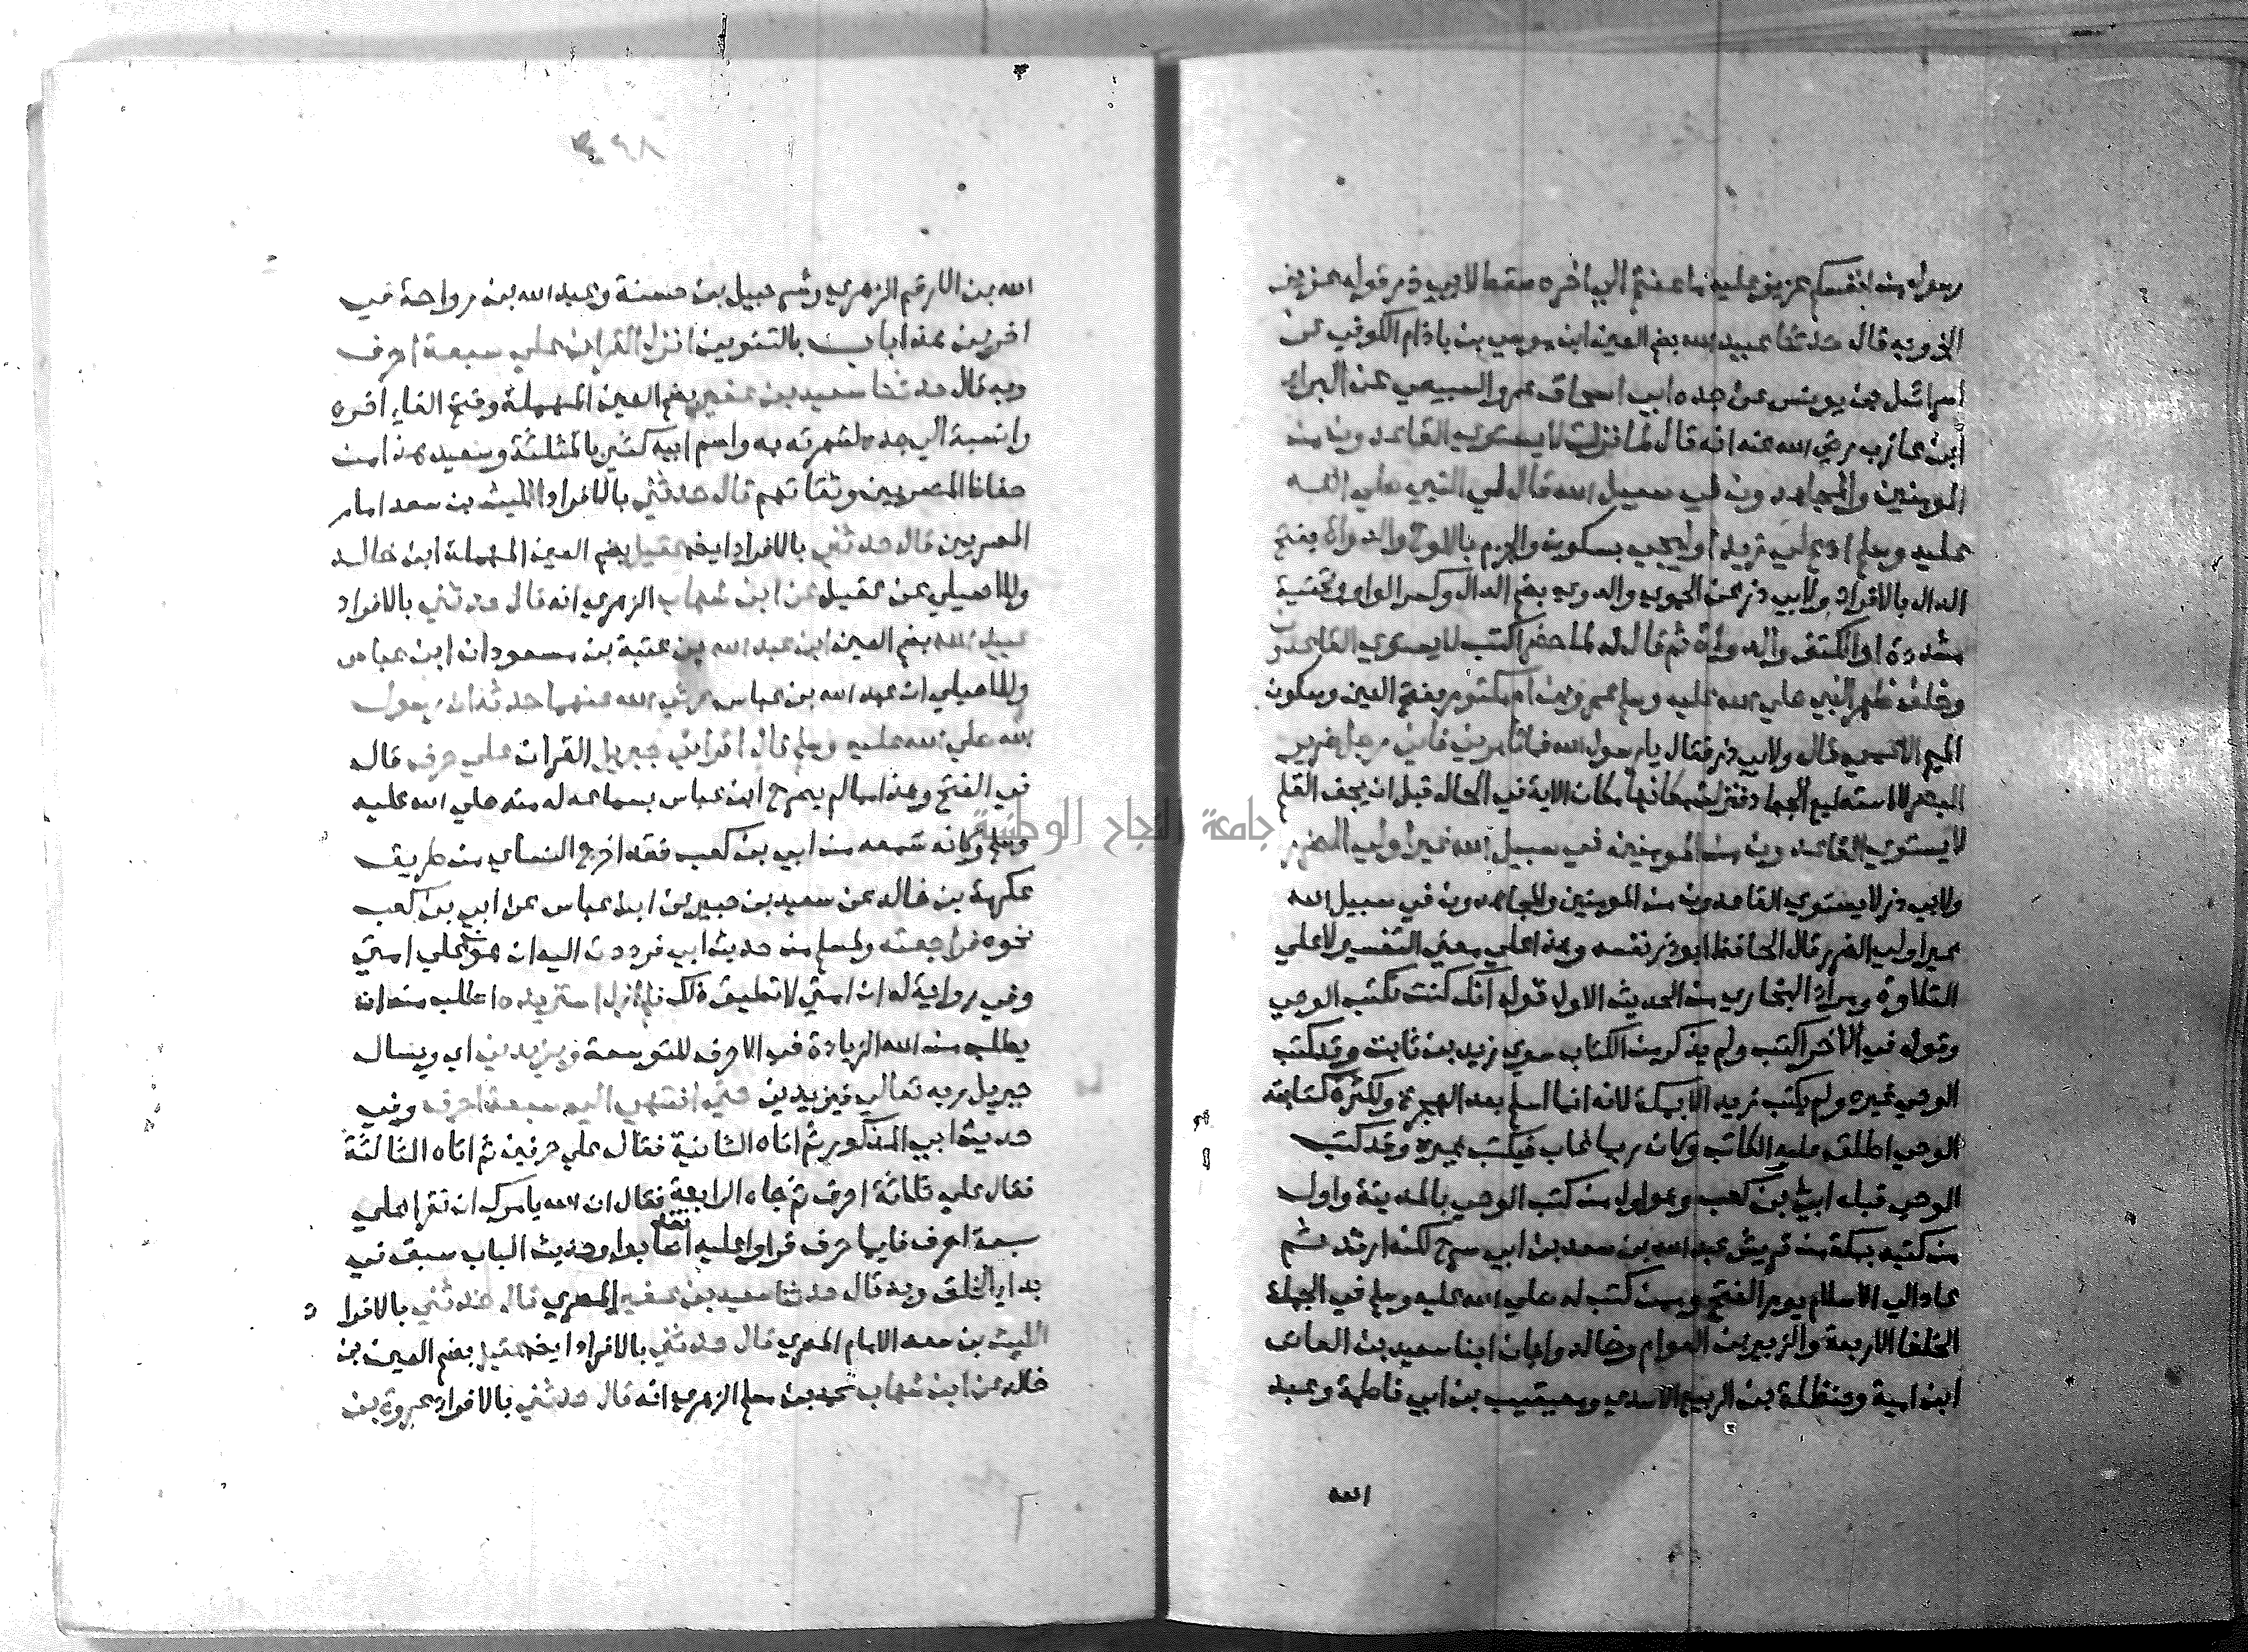 رسول من انفسكم عزيز عليه ما عنتم الي اخره سقط لابي ذر قوله عزيز
قال حدثنا عبيد الله بضم العين ابن موسي بن باذام الكوفي عن
اسرائيل بن يونس عن جده ابي اسحاق عمرو السبيعي عن البراء
ابن عازب رضي الله عنه انه قال لما نزلت لا يستوي القاعدون من
المومنين والمجاهدون في سبيل الله قال لي النبي صلي الله
عليه وسلم ادع لي زيدا وليجيي بسكون والجزم باللوح والدواة بفتح
الدال بالافراد ولابي ذر عن الحموي والدوي بضم الدال وكسر الواو وتحتية
مشددة او الكتف والدواة ثم قال له لما حضر اكتب لا يستوي القاعدون
وخلف ظهر النبي صلي الله عليه وسلم عمرو بن ام مكتوم بفتح العين وسكون
الميم الاعمي قال ولابي ذر فقال يا رسول الله فما تامرني فاني رجل ضرير
البصر لا استطيع الجهاد فنزلت مكانها مكان الاية في الحال قبل ان يجف القلم
لا يستوي القاعدون من المومنين في سبيل الله غير اولي الضرر
ولابي ذر لا يستوي القاعدون من المومنين والمجاهدون في سبيل الله
غير اولي الضرر قال الحافظ ابو ذر نفسه وهذا علي معني التفسير لا علي
التلاوة ومراد البخاري من الحديث الاول قوله انك كنت تكتب الوحي
وقوله في الاخر اكتب ولم يذكر من الكتاب سوي زيد بن ثابت وقد كتب
الوحي غيره ولم يكتب زيد الا بمكة لانه انما اسلم بعد الهجرة ولكثرة كتابته
الوحي اطلق عليه الكاتب وكان ربما غاب فيكتب غيره وقد كتب
الوحي قبله ابي بن كعب وهو اول من كتب الوحي بالمدينة واول
من كتبه بمكة من قريش عبد الله بن سعد بن ابي سرح لكنه ارتد ثم
عاد الي الاسلام يوم الفتح وممن كتب له صلي الله عليه وسلم في الجملة
الخلفا الاربعة والزبير بن العوام وخالد وابان ابنا سعيد بن العاص
ابن امية وحنظلة بن الربيع الاسدي ومعيقيب بن ابي فاطمة وعبد
الله
الله بن الارقم الزهري وشرحبيل بن حسنة وعبد الله بن رواحة في
اخرين هذا باب بالتنوين انزل القران علي سبعة احرف
وبه قال حدثنا سعيد بن عفير بضم العين المهملة وفتح الفاء اخره
را نسبة الي جده لشهرته به واسم ابيه كثير بالمثلثة وسعيد هذا من
حفاظ المصريين وثقاتهم قال حدثني بالافراد الليث بن سعد امام
المصريين قال حدثني بالافراد ايضا عقيل بضم العين المهملة ابن خالد
وللاصيلي عن عقيل عن ابن شهاب الزهري انه قال حدثني بالافراد
عبيد الله بضم العين ابن عبد الله بن عتبة بن مسعود ان ابن عباس
وللاصيلي ان عبد الله بن عباس رضي الله عنهما حدثه ان رسول
الله صلي الله عليه وسلم قال اقراني جبريل القران علي حرف قال
في الفتح وهذا مما لم يصرح ابن عباس بسماعه له منه صلي الله عليه
وسلم وكانه سمعه من ابي بن كعب فقد اخرج النساي من طريق
عكرمة بن خالد عن سعيد بن جبير عن ابن عباس عن ابي بن كعب
نحوه فراجعته ولمسلم من حديث ابي فرددت اليه ان هون علي امتي
وفي رواية له ان امتي لا تطيق ذلك فلم ازل استزيده اطلب منه ان
يطلب من الله الزيادة في الاحرف للتوسعة ويزيدني اي ويسال
جبريل ربه تعالي فيزيدني حتي انتهي الي سبعة احرف وفي
حديث ابي المذكور ثم اتاه الثانية فقال علي حرفين ثم اتاه الثالثة
فقال علي ثلاثة احرف ثم جاه الرابعة فقال ان الله يامرك ان تقرا علي
سبعة احرف فايما حرف قراوا عليه اصابوا وحديث الباب سبق في
بدا الخلق وبه قال حدثنا سعيد بن عفير المصري قال حدثني بالافراد
الليث بن سعد الامام المصري قال حدثني بالافراد ايضا عقيل بضم العين بن
خالد عن ابن شهاب محمد بن مسلم الزهري انه قال حدثني بالافراد عروة بن
جامعة النجاح الوطنية